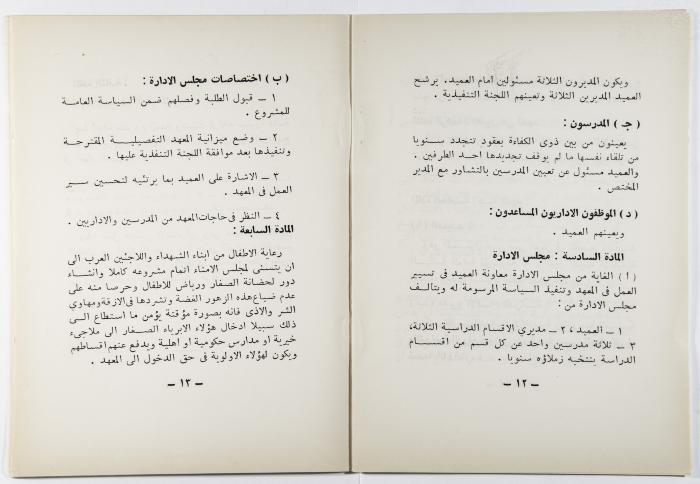 ويكون المديرون الثلاثة مسئولين امام العميد. يرشح
العميد المديرين الثلاثة وتعينهم اللجنة التنفيذية .
( جـ ) المدرسون :
يعينون من بين ذوى الكفاءة بعقود تتجدد سنويا
من تلقاء نفسها ما لم يوقف تجديدها احد الطرفين .
والعميد مسئول عن تعيين المدرسين بالتشاور مع المدير
المختص .
( د ) الموظفون الاداريون المساعدون :
ويعينهم العميد .
المادة السادسة : مجلس الادارة
( أ ) الغاية من مجلس الادارة معاونة العميد فى تسيير
العمل فى المعهد وتنفيذ السياسة المرسومة له ويتالف
مجلس الادارة من :
١ ــ العميد، ٢ ــ مديري الاقسام الدراسية الثلاثة،
٣ ــ ثلاثة مدرسين واحد عن كل قسم من اقسام
الدراسة ينتخبه زملاؤه سنويا .
ــ ١٢ ــ
( ب ) اختصاصات مجلس الادارة :
١ ــ قبول الطلبة وفصلهم ضمن السياسة العامة
للمشروع .
٢ ــ وضع ميزانية المعهد التفصيلية المقترحة
وتنفيذها بعد موافقة اللجنة التنفذية عليها .
٣ ــ الاشارة على العميد بما يرتئيه لتحسين سير
العمل فى المعهد .
٤ ــ النظر فى حاجات المعهد من المدرسين والاداريين .
المادة السابعة :
رعاية الاطفال من ابناء الشهداء واللاجئين العرب الى
ان يتسنى لمجلس الامناء اتمام مشروعه كاملا وانشاء
دور لحضانة الصغار ورياض للاطفال وحرصا منه على
عدم ضياع هذه الزهور الغضة وتشردها فى الازقة ومهاوي
الشر والاذى فانه بصورة مؤقتة يؤمن ما استطاع الى
ذلك سبيلا ادخال هؤلاء الابرياء الصغار الى ملاجىء
خيرية او مدارس حكومية او اهلية ويدفع عنهم اقساطهم
ويكون لهؤلاء الاولوية فى حق الدخول الى المعهد .
ــ ١٣ ــ